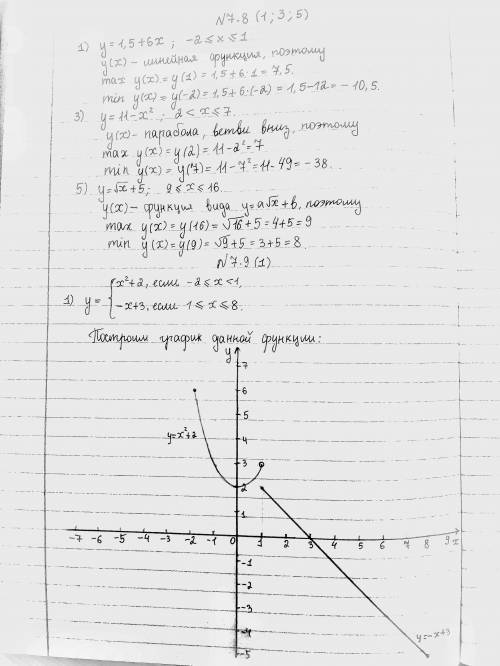 N7.8 (1; 3; 5)
1) y = 1,5+6x ; -2 ≤ x ≤ 1
y(x) - линейная функция, поэтому
max y(x) = y(1) = 1,5+6·1 = 7,5.
min y(x) = y(-2) = 1,5+6·(-2) = 1,5-12 = -10,5.
3) y = 11-x² ; 2 < x ≤ 7.
y(x) - парабола, ветви вниз, поэтому
max y(x) = y(2) = 11-2² = 7
min y(x) = y(7) = 11-7² = 11-49 = -38.
5) y = √x+5; 9 ≤ x ≤ 16.
y(x) - функция вида y = a√x + b, поэтому
max y(x) = y(16) = √16+5 = 4+5 = 9
min y(x) = y(9) = √9+5 = 3+5 = 8
N7.9 (1)
x²+2, если -2 ≤ x < 1,
1) y =
-x+3, если 1 ≤ x ≤ 8.
Построим график данной функции:
y
7
6
5
y=x²+2
4
3
2
1
-7 -6 -5 -4 -3 -2 -1 0 1 2 3 4 5 6 7 8 9 x
-1
-2
-3
-4
y=-x+3
-5